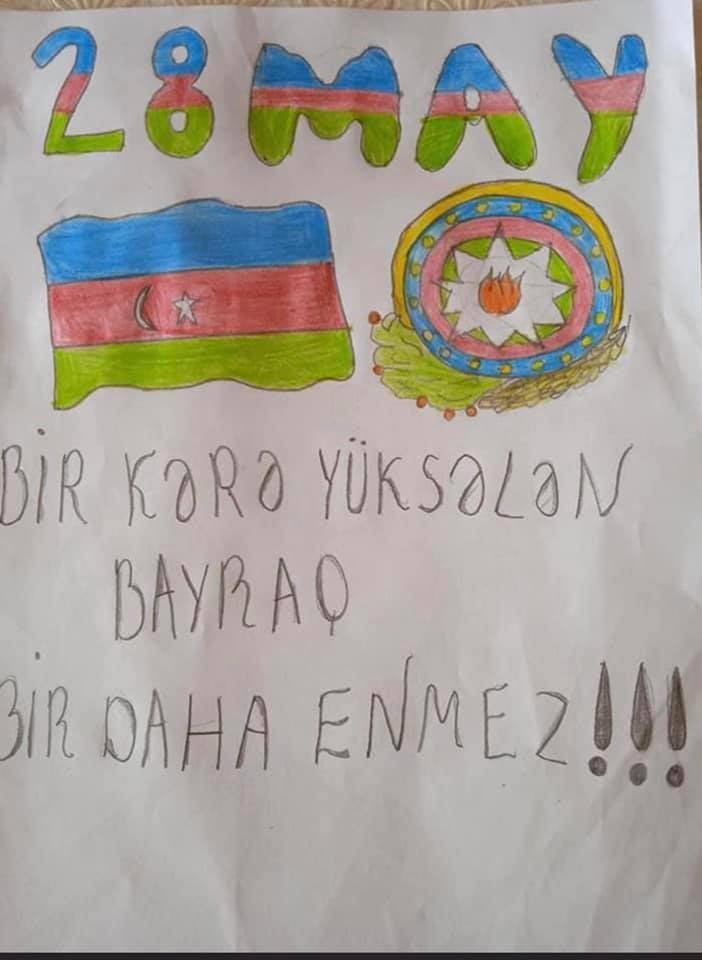 28 MAY
BİR KƏRƏ YÜKSƏLƏN
BAYRAQ
BİR DAHA ENMEZ!!!